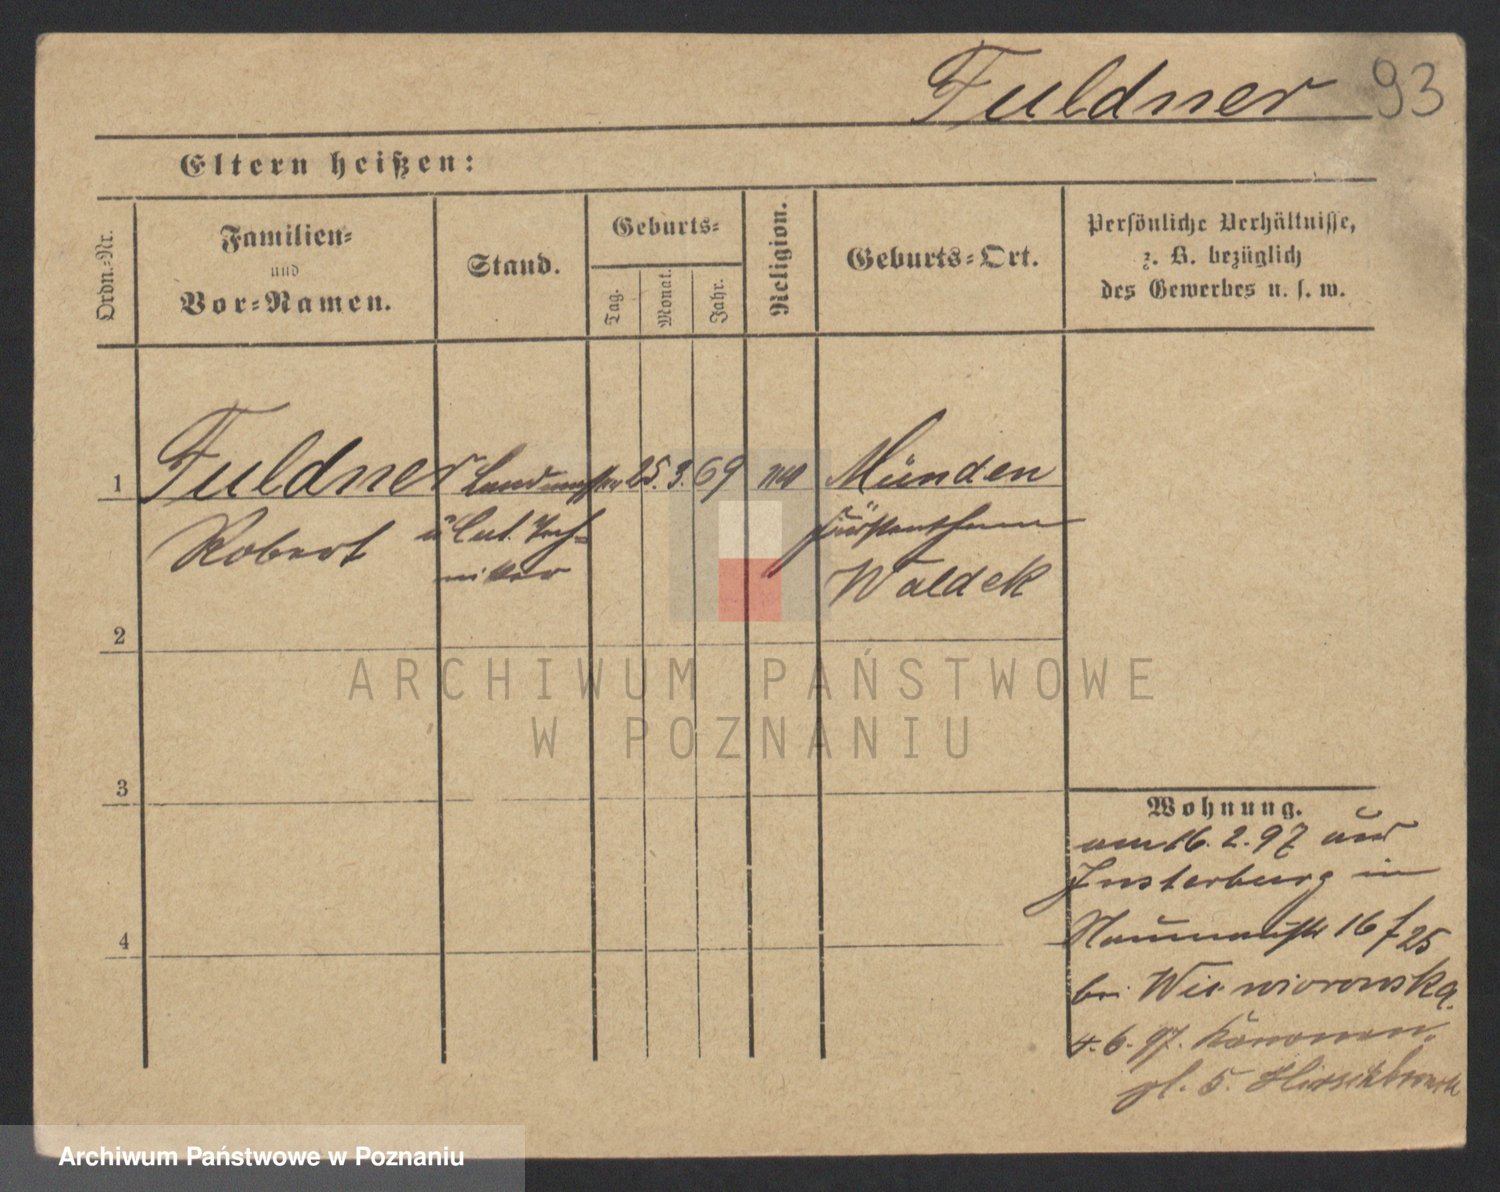 Fuldner 93
Eltern heißen:
Ordn.-Nr.
Familien-
und
Vor-Namen.
Stand.
Geburts-
Tag.
Monat.
Jahr.
Religion.
Geburts-Ort.
Persönliche Verhältnisse,
z. B. bezüglich
des Gewerbes u. s. w.
1 Fuldner Landmesser 25. 3. 69 Münden
Robert u Cult. Tech-
niker
Fürstenthum
Waldek
2
ARCHIWUM PAŃSTWOWE
W POZNANIU
3
Wohnung.
am 16. 2. 97 aus
Insterburg in
Naumannstr 16 f 25
bei Wiewiorowska.
4. 6. 97. Kanonen-
pl. 5.
4
Archiwum Państwowe w Poznaniu